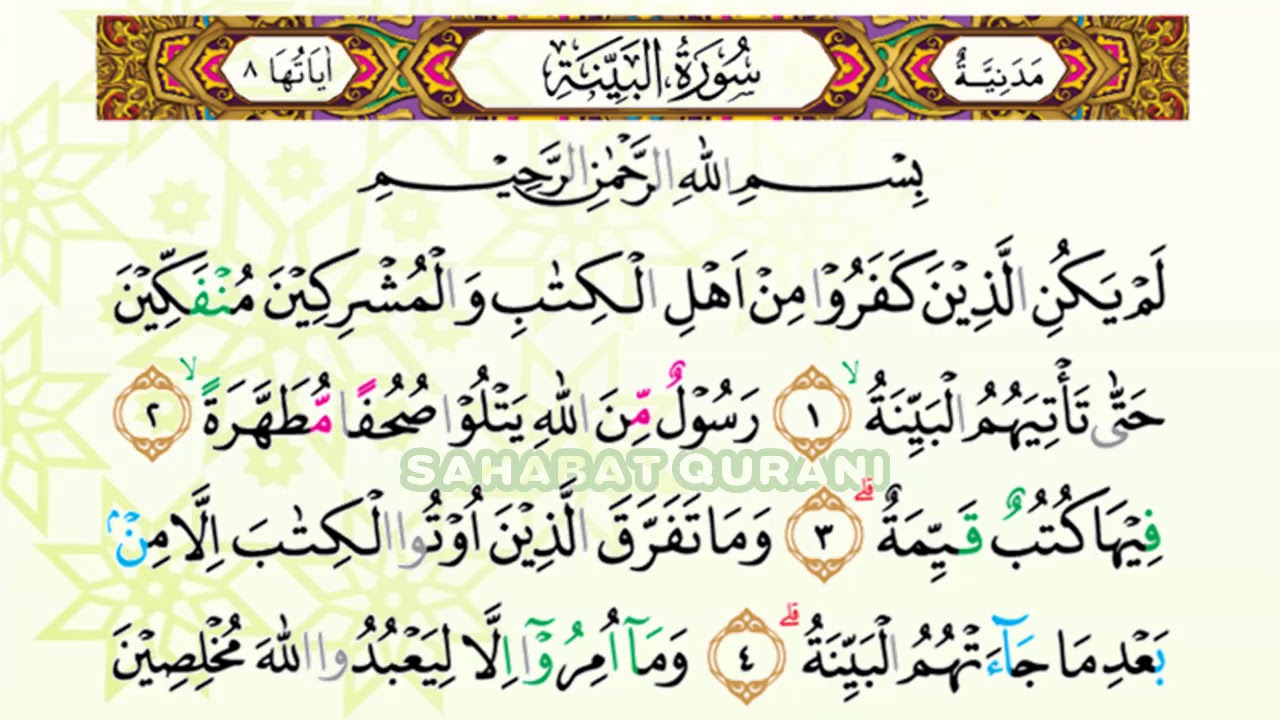 مَدَنِيَّةٌ سُورَةُ الْبَيِّنَةِ اٰيَاتُهَا ٨
بِسْمِ اللّٰهِ الرَّحْمٰنِ الرَّحِيْمِ
لَمْ يَكُنِ الَّذِيْنَ كَفَرُوْا مِنْ اَهْلِ الْكِتٰبِ وَالْمُشْرِكِيْنَ مُنْفَكِّيْنَ
حَتّٰى تَأْتِيَهُمُ الْبَيِّنَةُ ۙ ١ رَسُوْلٌ مِّنَ اللّٰهِ يَتْلُوْا صُحُفًا مُّطَهَّرَةً ۙ ٢
SAHABAT QURANI
فِيْهَا كُتُبٌ قَيِّمَةٌ ۗ ٣ وَمَا تَفَرَّقَ الَّذِيْنَ اُوْتُوا الْكِتٰبَ اِلَّا مِنْۢ
بَعْدِ مَا جَاۤءَتْهُمُ الْبَيِّنَةُ ۗ ٤ وَمَآ اُمِرُوْٓا اِلَّا لِيَعْبُدُوا اللّٰهَ مُخْلِصِيْنَ